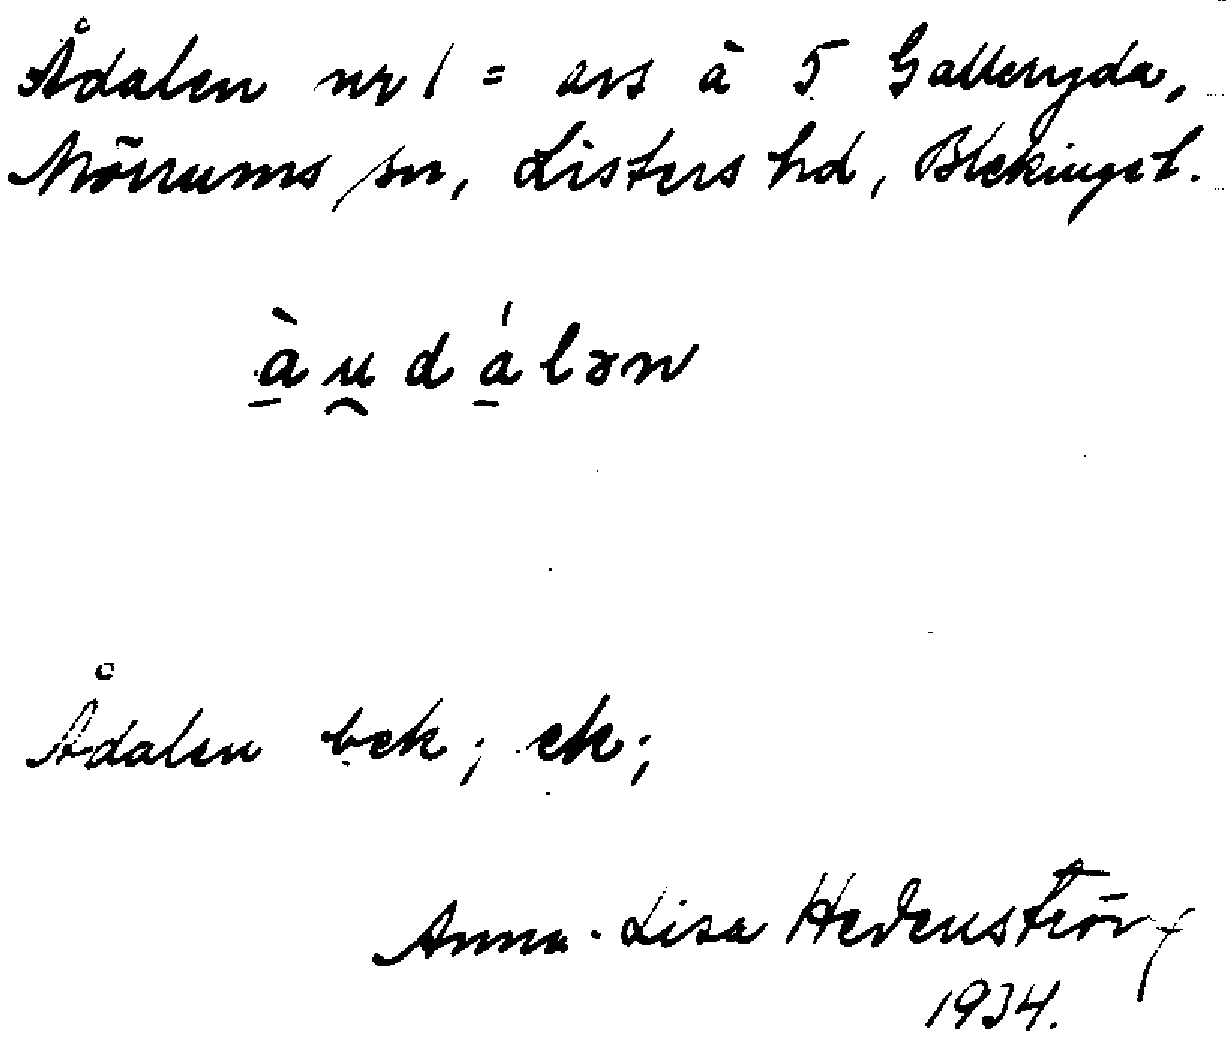 Ådalen nr 1 = avs å 5 Galleryda,
Mörrums sn, Listers hd, Blekinge l.
àu̯dálən
Ådalen bek; ek;
Anna-Lisa Hedenström
1934.